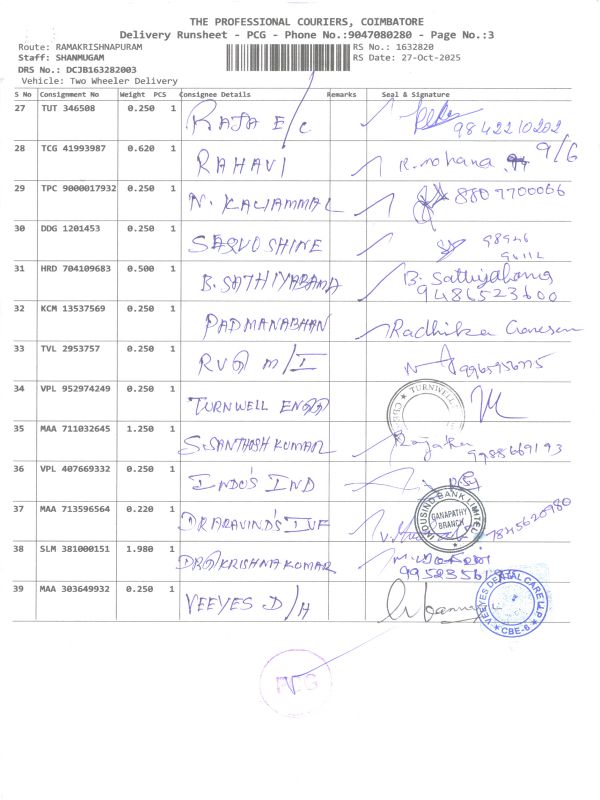 THE PROFESSIONAL COURIERS, COIMBATORE
Delivery Runsheet - PCG - Phone No.:9047080280 - Page No.:3
Route: RAMAKRISHNAPURAM RS No.: 1632820
Staff: SHANMUGAM RS Date: 27-Oct-2025
DRS No.: DCJB163282003
Vehicle: Two Wheeler Delivery
S No Consignment No Weight PCS Consignee Details Remarks Seal & Signature
27 TUT 346508 0.250 1 RAJA E/C
9842210202
28 TCG 41993987 0.620 1 RAHAVI R. mohana 9/6
29 TPC 9000017932 0.250 1 N. KALIAMMAL 8807700066
30 DDG 1201453 0.250 1 SARVO SHINE
31 HRD 704109683 0.500 1 B. SATHIYABAMA B. Sathiyabama
9486523600
32 KCM 13537569 0.250 1 PADMANABHAN Radhika Ganesan
33 TVL 2953757 0.250 1 RVG M/I
34 VPL 952974249 0.250 1 TURNWELL ENGG TURNWELL
35 MAA 711032645 1.250 1 S. SANTHOSH KUMAR
9988669193
36 VPL 407669332 0.250 1 INDO'S IND
37 MAA 713596564 0.220 1 DR ARAVIND'S IVF 7845620980
INDUSIND BANK LIMITED
GANAPATHY
BRANCH
38 SLM 381000151 1.980 1 DR G KRISHNA KUMAR
39 MAA 303649932 0.250 1 VEEYES D/H
VEEYES DENTAL CARE LLP
CBE-6
PCG